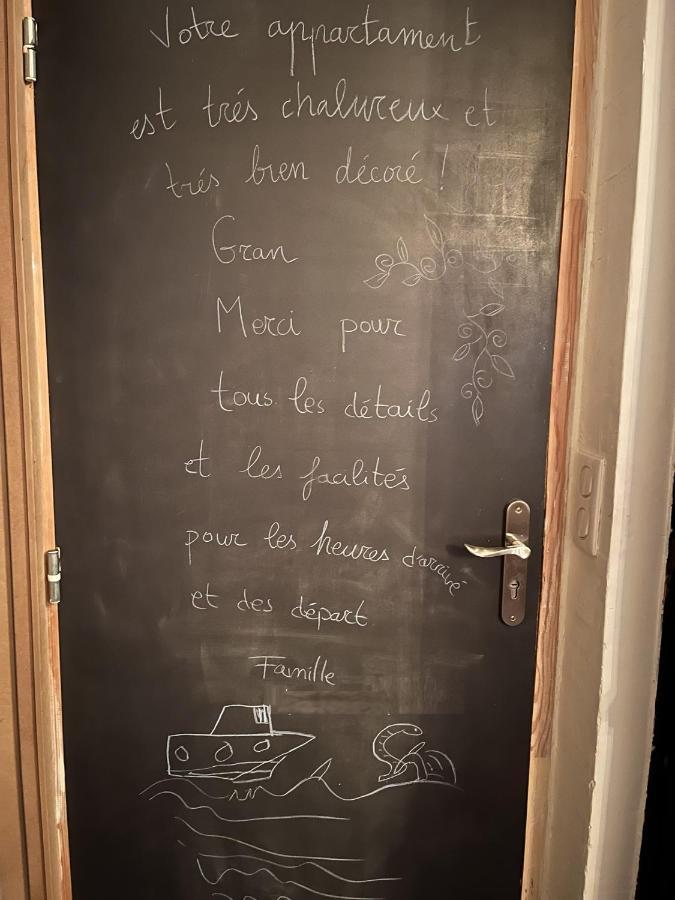 Votre appartament
est trés chalureux et
trés bien décoré !
Gran
Merci pour
tous les détails
et les facilités
pour les heures d'arrivé
et des départ
Famille